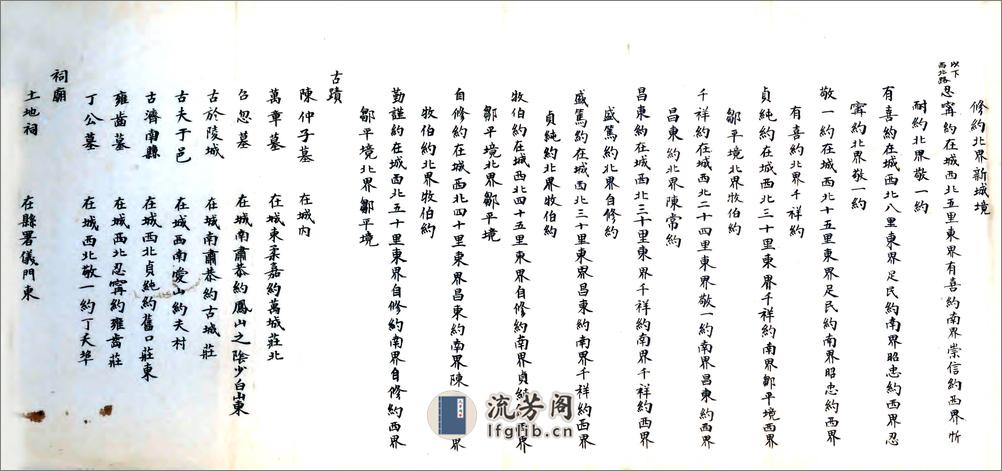 修約北界新城境
以下西北路
忍寧約在城西北五里東界有喜約南界崇信約西界忻
耐約北界敬一約
有喜約在城西北八里東界足民約南界昭忠約西界忍
寧約北界敬一約
敬一約在城西北十五里東界足民約南界昭忠約西界
有喜約北界千祥約
貞純約在城西北三十里東界千祥約南界鄒平境西界
鄒平境北界牧伯約
千祥約在城西北二十四里東界敬一約南界昌東約西界
昌東約北界陳常約
昌東約在城西北三十里東界千祥約南界千祥約西界
盛篤約北界自修約
盛篤約在城西北三十里東界昌東約南界千祥約西界
貞純約北界牧伯約
牧伯約在城西北四十五里東界自修約南界貞純約西界
鄒平境北界鄒平境
自修約在城西北四十里東界昌東約南界陳 界
牧伯約北界牧伯約
勤謹約在城西北五十里東界自修約南界自修約西界
鄒平境北界鄒平境
古蹟
陳仲子墓 在城內
萬章墓 在城東柔嘉約萬城莊北
召忽墓 在城南肅恭約鳳山之陰少白山東
古於陵城 在城南肅恭約古城莊
古夫于邑 在城西南愛山約夫村
古濟南縣 在城西北貞純約舊口莊東
雍齒墓 在城西北忍寧約雍齒莊
丁公墓 在城西北敬一約丁夫埠
祠廟
土地祠 在縣署儀門東
流芳阁
lfglib.cn